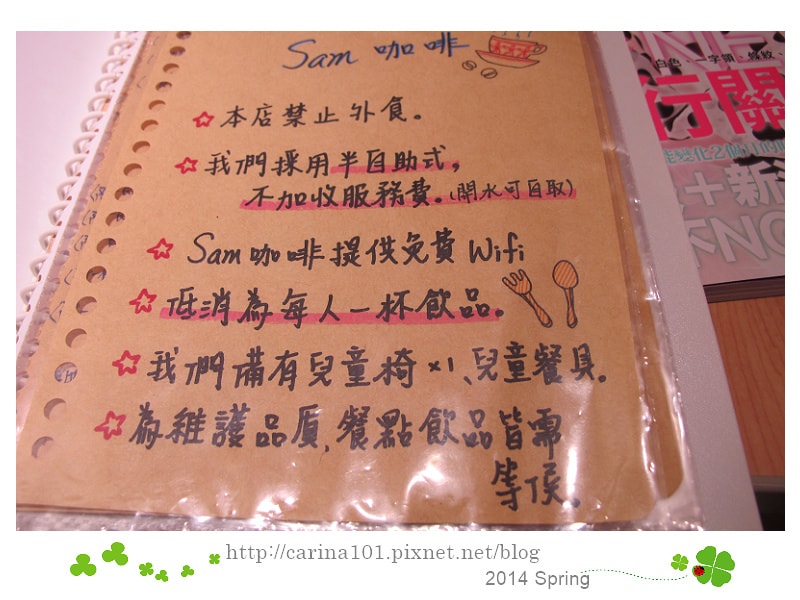 Sam 咖啡
本店禁止外食。
我們採用半自助式,
不加收服務費。(開水可自取)
Sam咖啡提供免費Wifi
低消為每人一杯飲品。
我們備有兒童椅x1、兒童餐具。
為維護品質,餐點飲品皆需
等侯。
白色.一字領.條紋
行關
新
http://carina101.pixnet.net/blog
2014 Spring